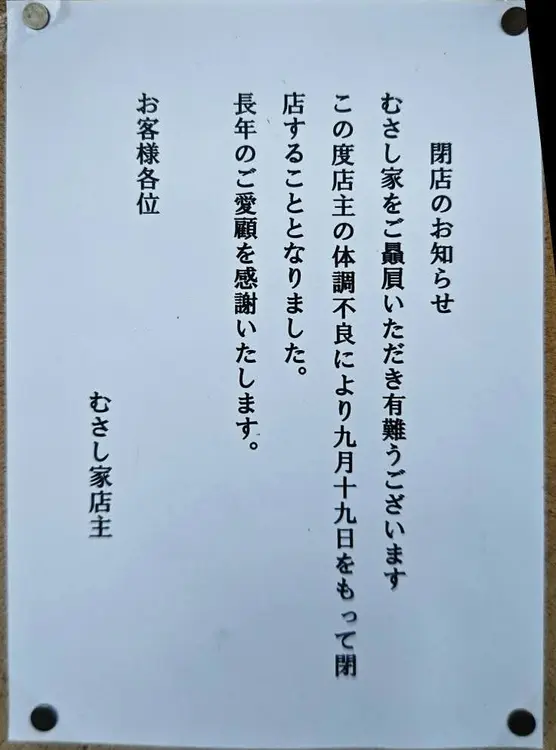 閉店のお知らせ
むさし家をご贔屓いただき有難うございます
この度店主の体調不良により九月十九日をもって閉
店することとなりました。
長年のご愛顧を感謝いたします。
お客様各位
むさし家店主